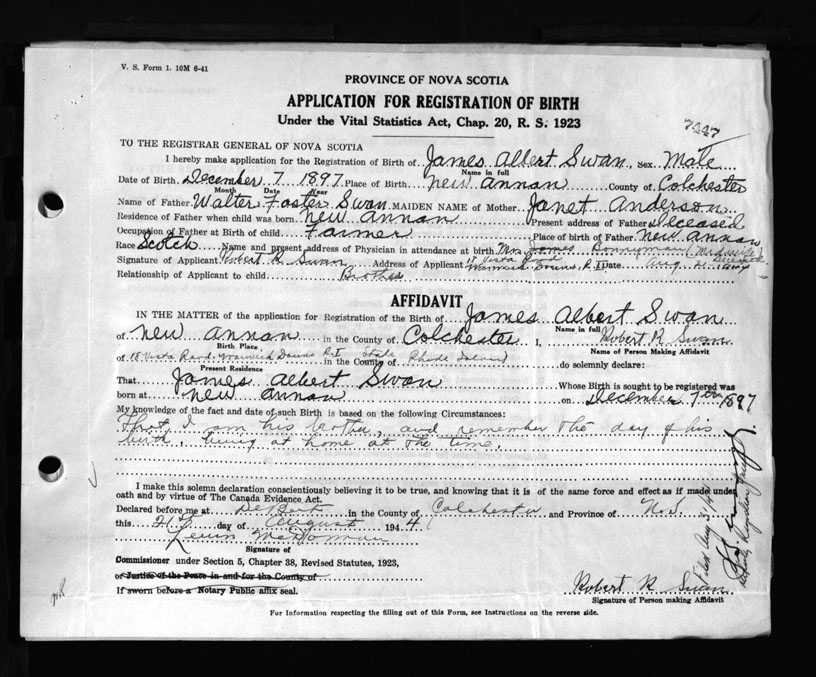 V. S. Form 1. 10M 6-41
PROVINCE OF NOVA SCOTIA
APPLICATION FOR REGISTRATION OF BIRTH
Under the Vital Statistics Act, Chap. 20, R. S. 1923
7447
TO THE REGISTRAR GENERAL OF NOVA SCOTIA
I hereby make application for the Registration of Birth of James Albert Swan, Sex Male
Name in full
Date of Birth December 7 1897 Place of Birth New Annan County of Colchester
Month Date Year
Name of Father Walter Foster Swan MAIDEN NAME of Mother Janet Anderson
Residence of Father when child was born New Annan Present address of Father Deceased
Occupation of Father at Birth of child Farmer Place of birth of Father New Annan
Race Scotch Name and present address of Physician in attendance at birth Mrs James Bonnyman (Midwife) Deceased
Signature of Applicant Robert R. Swan Address of Applicant 18 Vista Road R.I. Date Aug. 21
Relationship of Applicant to child Brother
AFFIDAVIT
IN THE MATTER of the application for Registration of the Birth of James Albert Swan
Name in full
of New Annan in the County of Colchester I, Robert R. Swan
Birth Place Name of Person Making Affidavit
of 18 Vista Road Warwick Downs R.I. in the County of State Rhode Island do solemnly declare:
Present Residence
That James Albert Swan Whose Birth is sought to be registered was
born at New Annan on December 7th 1897
My knowledge of the fact and date of such Birth is based on the following Circumstances:
That I am his brother, and remember the day of his
birth, being at home at the time.
I make this solemn declaration conscientiously believing it to be true, and knowing that it is of the same force and effect as if made under
oath and by virtue of The Canada Evidence Act.
Declared before me at DeBert in the County of Colchester and Province of N.S.
this 21st day of August 1944
Signature of
Commissioner under Section 5, Chapter 38, Revised Statutes, 1923,
or Justice of the Peace in and for the County of
If sworn before a Notary Public affix seal.
Robert R. Swan
Signature of Person making Affidavit
For Information respecting the filling out of this Form, see Instructions on the reverse side.